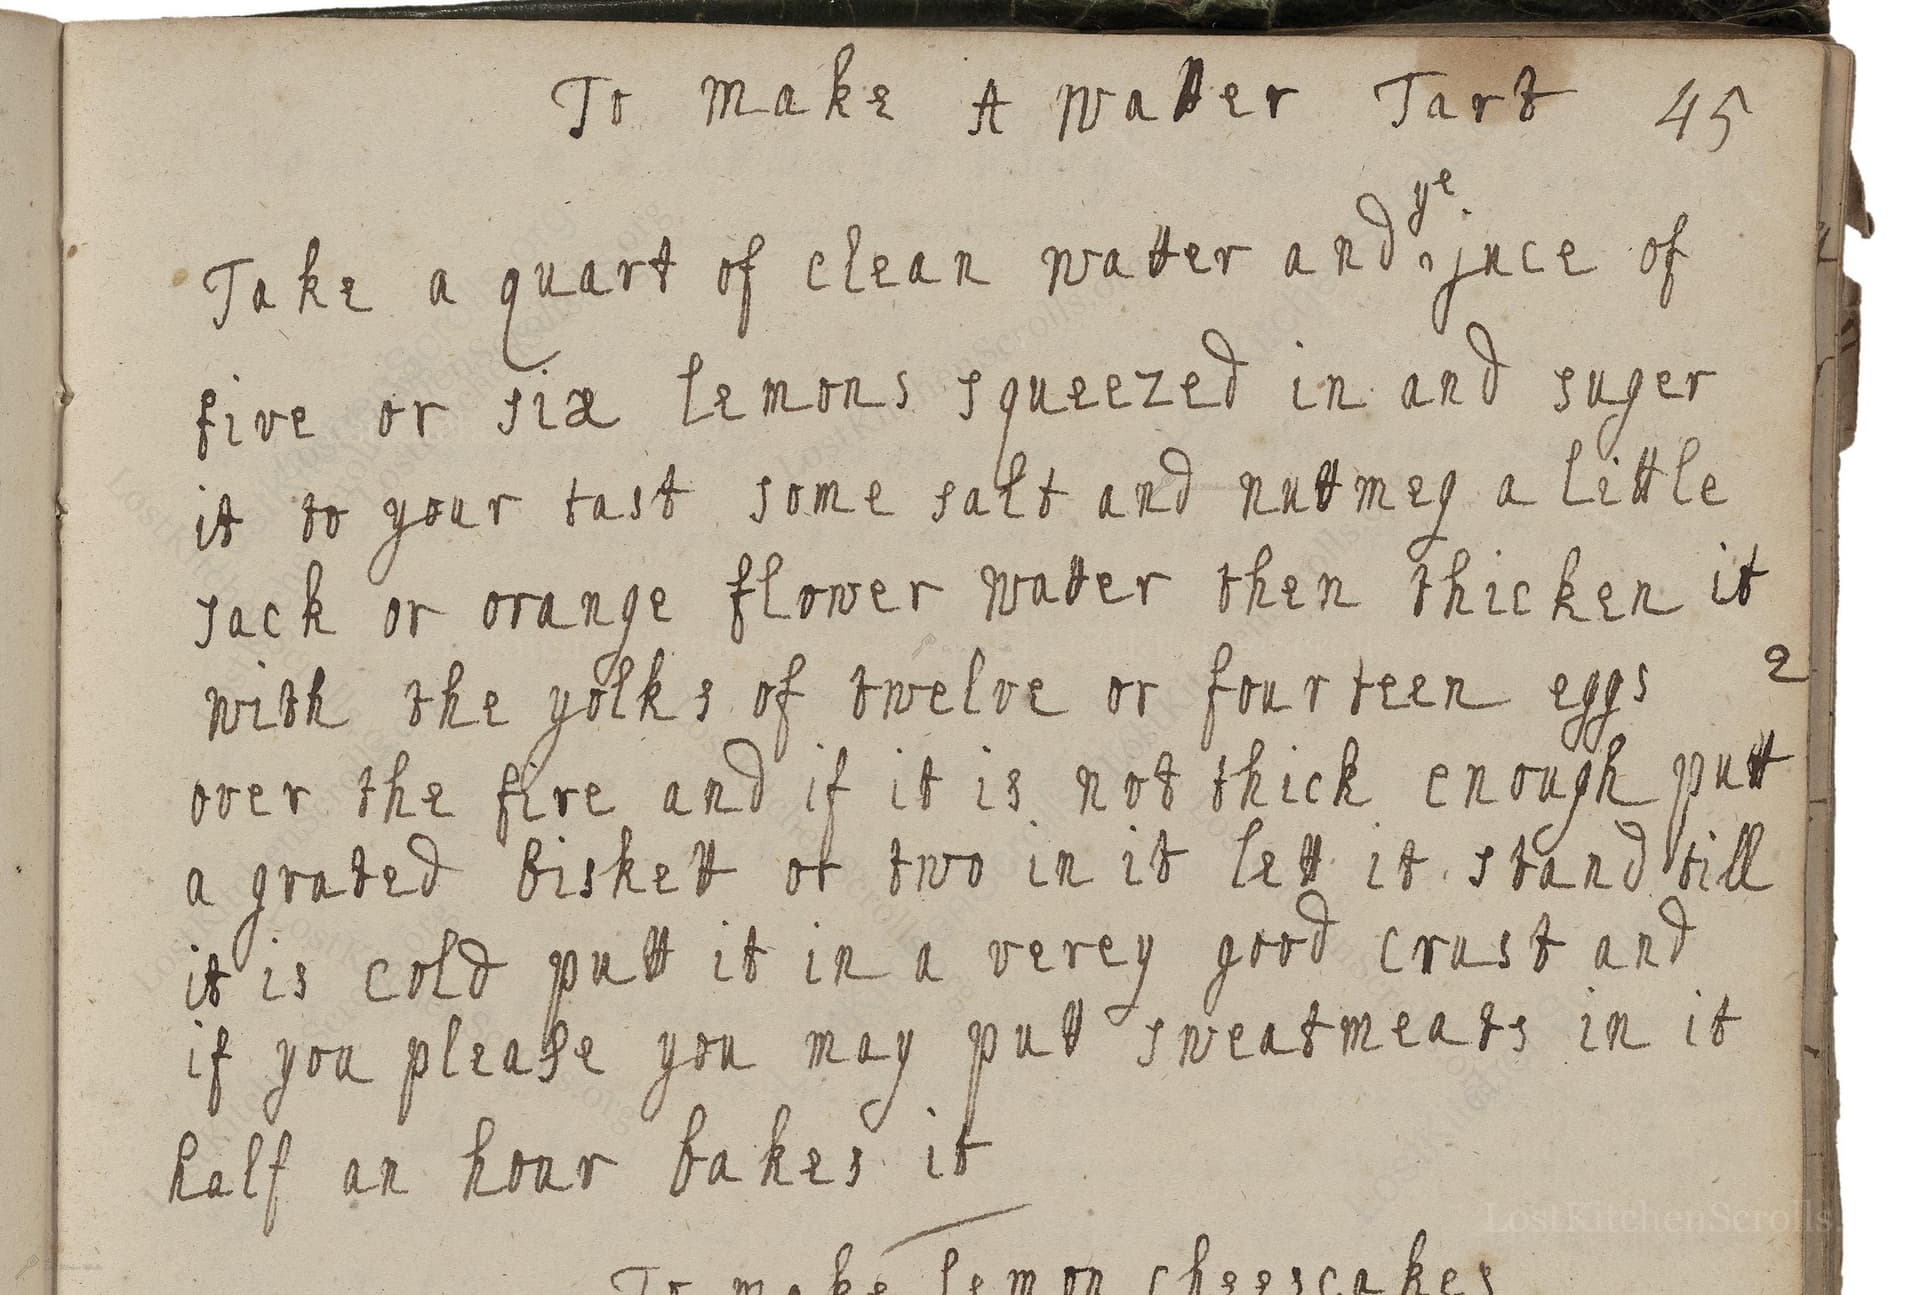 To make A watter Tart 45
ye
Take a quart of clean watter and juce of
five or six lemons squeezed in and suger
it to your tast some salt and nuttmeg a little
sack or orange flower watter then thicken it
with the yolks of twelve or fourteen eggs 2
over the fire and if it is not thick enough putt
a grated biskett or two in it lett it stand till
it is cold putt it in a verey good crust and
if you please you may putt sweatmeats in it
half an hour bakes it
LostKitchenScrolls.
To make lemon cheescakes